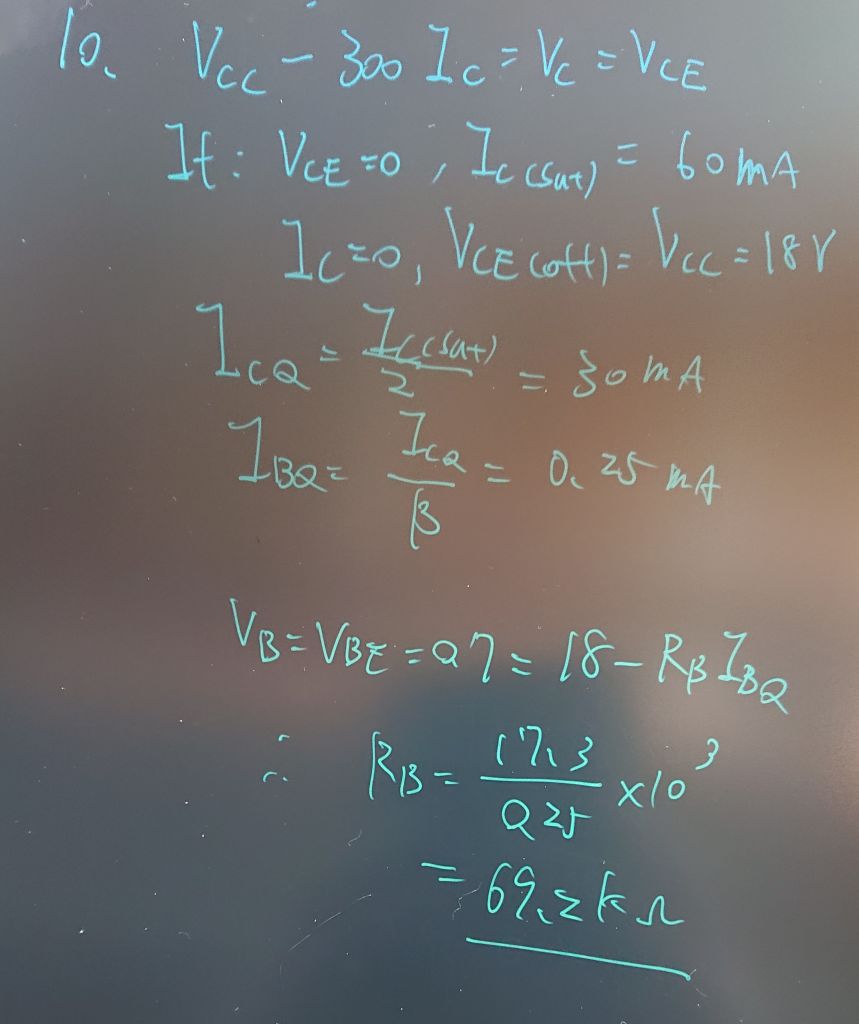 10. Vcc - 300 Ic = Vc = VCE
If: VCE=0, Ic(sat) = 60mA
Ic=0, VCE(off) = Vcc = 18V
ICQ = Ic(sat)/2 = 30mA
IBQ = ICQ/β = 0.25mA
VB = VBE = 0.7 = 18 - RB IBQ
∴ RB = 17.3/0.25 ×10³
= 69.2kΩ